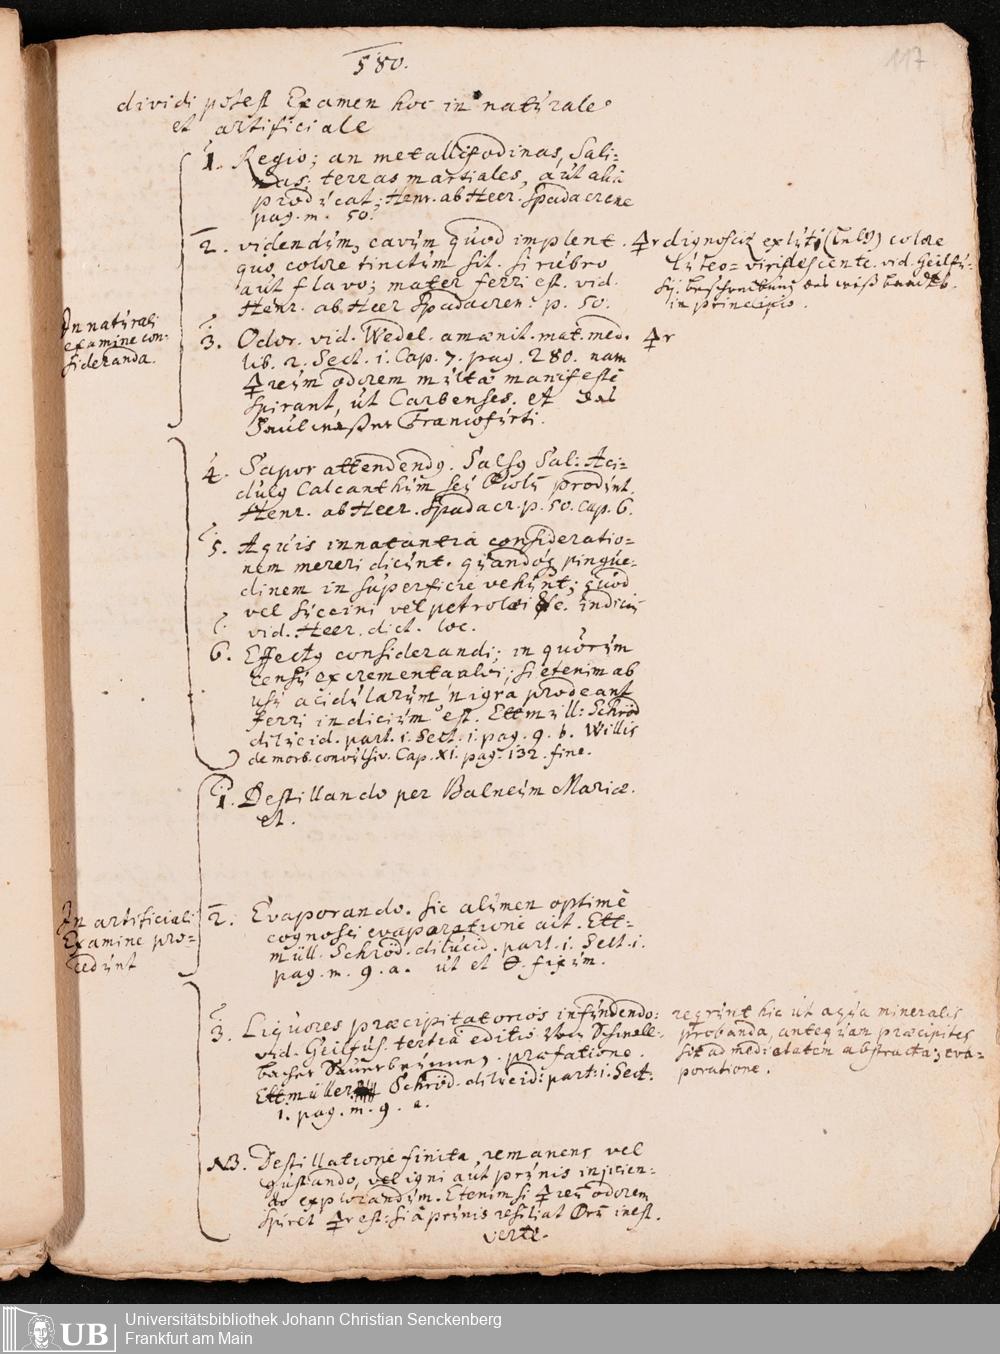 580.
117
dividi potest Examen hoc in naturale
et artificiale
In naturali
examine con-
sideranda.
1. Regio; an metallifodinas, Sali=
nas; terras martiales, aut alia
producat; Henr. ab Heer. Spadacrene
pag. m. 50.
2. videndum, cavum quod implent.
quo colore tinctum sit. si rubro
aut flavo; mater ferri est. vid.
Henr. ab Heer Spadacren. p. 50.
🜍r dignoscit. ex luto colore
luteo=viridescente. vid. Geilfu-
sij. beschreibung des
in principio.
3. Odor. vid. Wedel. amænit. mat. med.
lib. 2. Sect. i. Cap. 7. pag. 280. nam
🜍reum odorem multæ manifestè
spirant, ut Carbenses. et das
Faulwaßer Francofurti.
🜍r
4. Sapor attendendg. Salsg Sal: Aci=
dulg Calcanthum seu produnt.
Henr. ab Heer. Spadacr. p. 50. Cap. 6.
5. Aquis innatantia consideratio=
nem mereri dicunt. quandoq pingue=
dinem in superficie vehunt; quod
vel succini vel petrolæi &c. indiciu
vid. Heer. dict. loc.
6. Effectg considerandi; in quorum
censu excrementa alvi; si etenim ab
usu acidularum nigra prodeant
ferri indicium est. Ettmüll: Schröd
dilucid. part. i. Sect. i. pag. 9. b. Willis
de morb. convulsiv. Cap. XI. pag. 132. fine.
In artificiali
Examine pro=
cedunt
1. Destillando per Balneum Mariæ.
et.
2. Evaporando. sic alumen optimè
cognosci evaporatione ait. Ett=
müll. Schröd. dilucid. part. i. Sect. i.
pag. m. 9. a. ut et fixum.
3. Liquores præcipitatorios infundendo:
vid. Geilfus. tertia editio Von Schwall-
bacher Sauerbrunnen. præfatione.
Ettmüller Schröd. dilucid: part: i. Sect:
1. pag. m. 9. a.
requrunt hic ut aqua mineralis
probanda, antequam præcipitet
sit ad medietatem abstracta; eva=
poratione.
NB. Destillatione finita, remanens vel
gustando, vel igni aut prunis injicien=
do explorandum. Etenim si 🜍reu odorem
spiret 🜍r est: si à prunis resiliat inest.
verte.
Universitätsbibliothek Johann Christian Senckenberg
Frankfurt am Main
UB